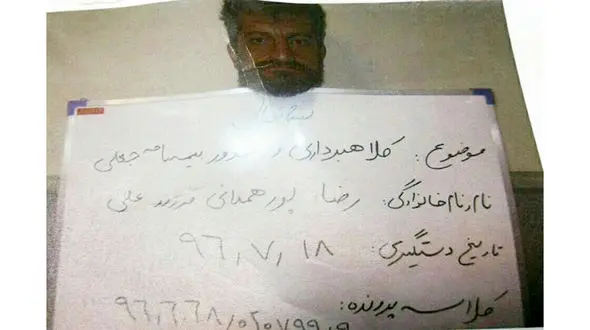 موضوع: کلاهبرداری و صدور بیمنامه جعلی
نام و نام خانوادگی: رضا پورهمدانی فرزند علی
تاریخ دستگیری: ۹۶٫۷٫۱۸
کلاسه پرونده: